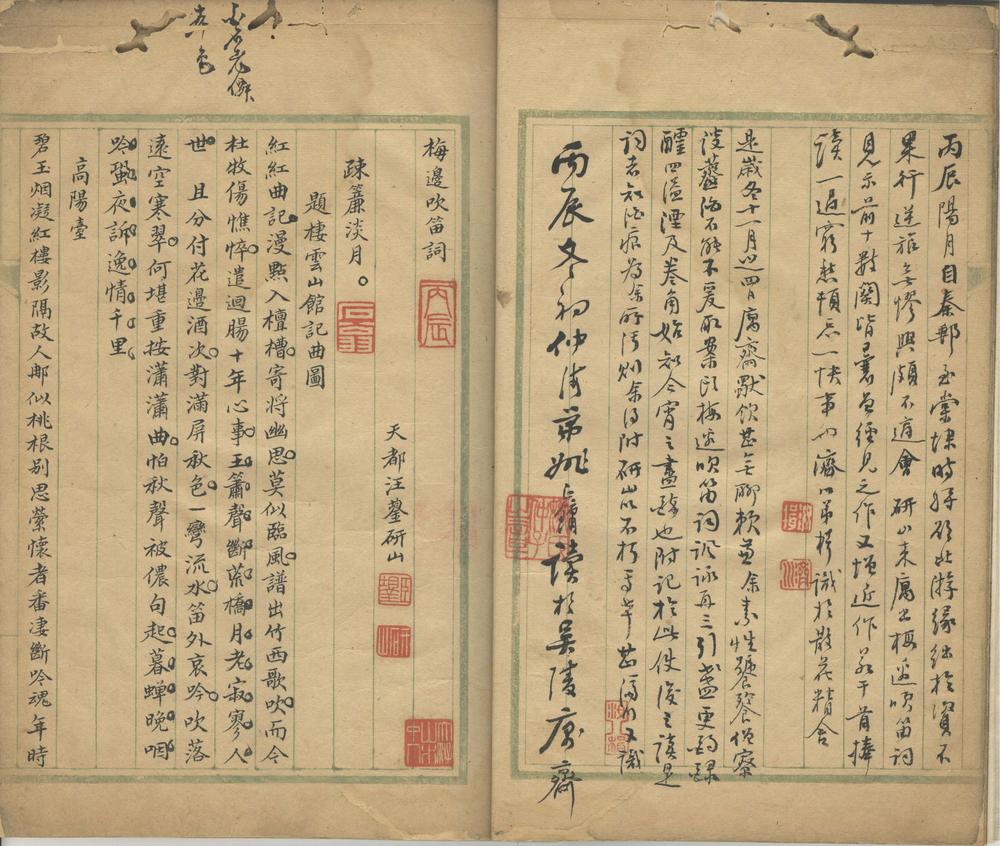 丙辰陽月自秦郵至棠埭時將啟北游緣絀於資不
果行逆旅無憀興頗不適會研山來屬出梅邊吹笛詞
見示前十數闋皆曩昔經見之作又增近作若干首捧
讀一過窮愁頓忘一快事也濟以弟楫識於散花精舍
是歲冬十一月廿四日腐齋獸飲甚無聊賴兼余素性饕餮僧寮
蔬 不能不爰取案頭梅邊吹笛詞諷詠再三引盞更酌醁
醽四溢溼及卷角始知今宵之盡醉也附記於此使後之讀是
詞者知酒痕為余所汚則余得附研山以不朽 幸甚 又識
丙辰冬初仲海弟姚 讀於吳陵 齋
梅邊吹笛詞
丙辰
天都汪鋆研山
汪鋆
研山
疎簾淡月。
題棲雲山館記曲圖
紅紅曲記漫點入檀槽寄將幽思莫似臨風譜出竹西歌吹而今
杜牧傷憔悴遣迴腸十年心事玉簫聲斷荒橋月老寂寥人
世 且分付花邊酒次對滿屏秋色一彎流水笛外哀吟吹落
遠空寒翠何堪重按瀟瀟曲怕秋聲被儂句起暮蟬晚咽
吟蛩夜訴逸情千里
高陽臺
碧玉烟凝紅樓影隔故人那似桃根别思縈懷者番淒斷吟魂年時